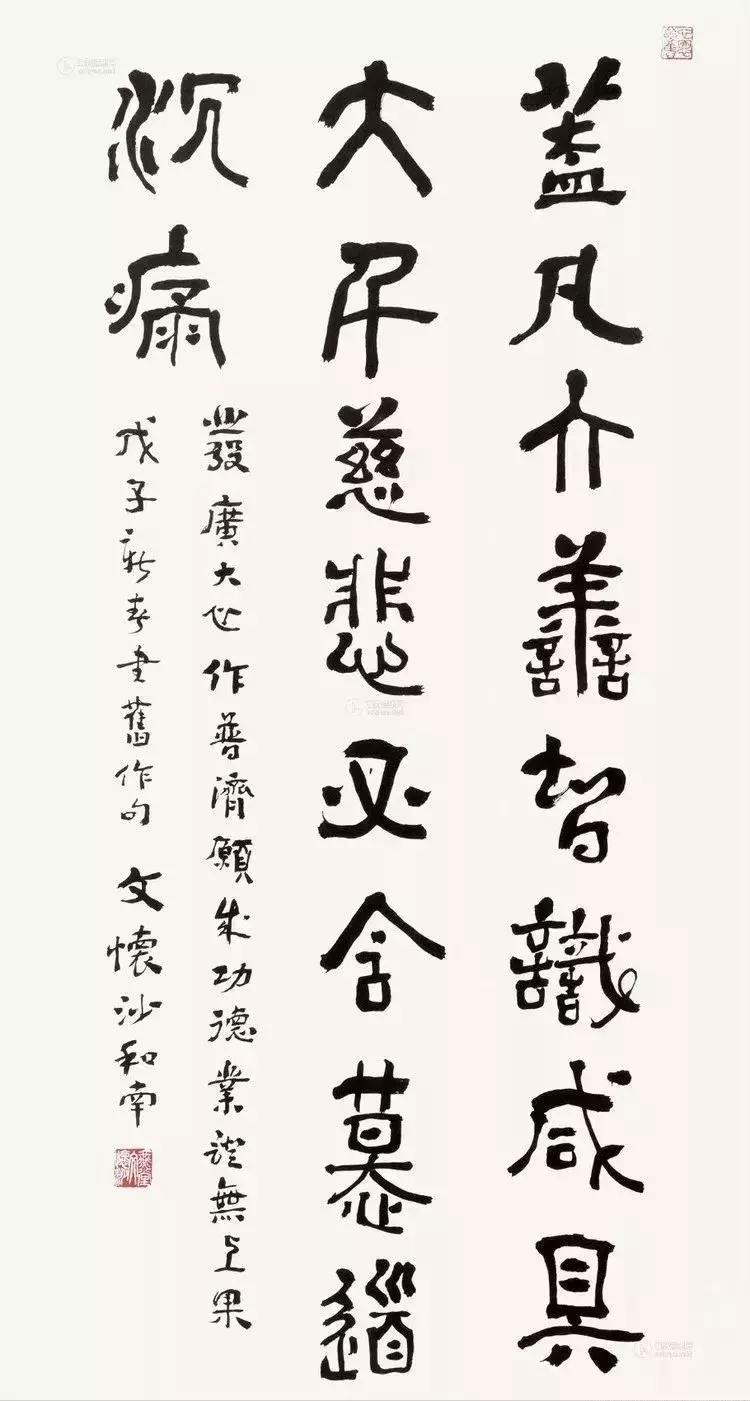 蓋凡亣譱智識咸具
大千慈悲必含慕道
沉痛
並發廣大心作普濟願成功德業證無上果
戊子新春書舊作句 文懷沙和南